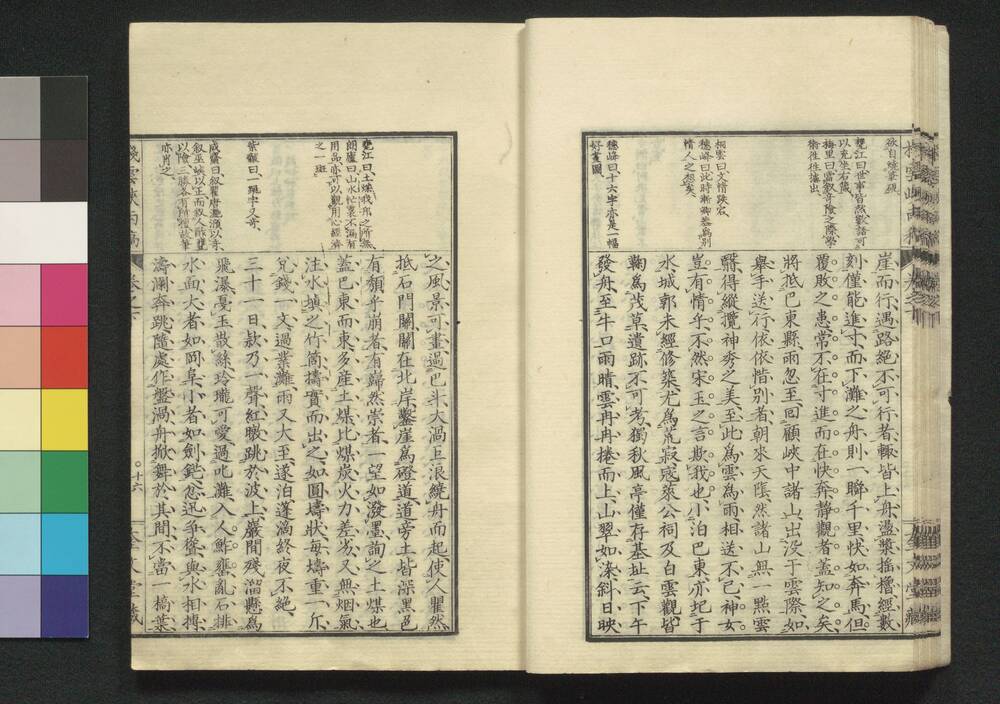 敍自矯筆硯
甕江曰世事皆然數語可
以充坐右箴
梅里曰當敍奇險之際學
術往往擡出
桐雲曰文情跌宕
穗峰曰此時漸卿甚爲別
情人之想矣
穗峰曰十六字亦是一幅
好畫圖
崖而行遇路絶不可行者輙皆上舟盪槳揺櫓經數
刻僅能進寸而下灘之舟則一瞬千里快如奔馬但
覆敗之患常不在寸進而在快奔靜觀者蓋知之矣
將抵巴東縣雨忽至回顧峽中諸山出没于雲際如
舉手送行依依惜別者朝來天陰然諸山無一點雲
翳得縱攬神秀之美至此爲雲爲雨相送不已神女
豈有情乎不然宋玉之言欺我也小泊巴東亦圮于
水城郭未經修築尤爲荒寂寇萊公祠及白雲觀皆
鞠爲茂草遺跡不可考獨秋風亭僅存基址云下午
發舟至牛口雨晴雲冉冉捲而上山翠如滌斜日映
甕江曰土煤我邦之所無
朗廬曰山水忙裏不漏有
用品亦可以觀用心經濟
之一斑
紫巓曰一跳字又奇
成齋曰敍瞿唐灩澦以奇
敍巫峽以正而敍人鮓甕
以險三勝各有所獨故筆
亦肖之
之風景可畫過巴斗大渦上浪繞舟而起使人瞿然
抵石門關關在北岸鑿崖爲磴道道旁土皆深黑色
有頽乎崩者有巋然崇者一望如潑墨詢之土煤也
蓋巴東而東多産土煤比煤炭火力差劣又無烟氣
注水塡之竹筒擣實而出之如圓壔狀每壔重一斤
兌錢一文過業灘雨又大至遂泊蓬㵎終夜不絶
三十一日欸乃一聲紅暾跳於波上巖間殘溜懸爲
飛瀑戞玉散絲玲瓏可愛過叱灘入人鮓甕亂石排
水面大者如阜小者如劍鋩忽迅爭聳與水相搏
濤瀾奔跳隨處作盤渦舟掀舞於其間不當一槁葉
棧雲峽雨稿
卷之下
十六
奎文堂藏